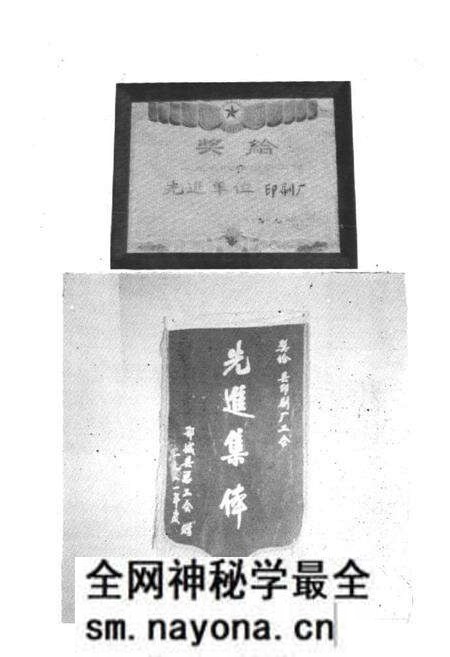 奖给
先進单位 印刷厂
奖给 县印刷厂工会
先進集体
县总工会 赠
全网神秘学最全
sm.nayona.cn